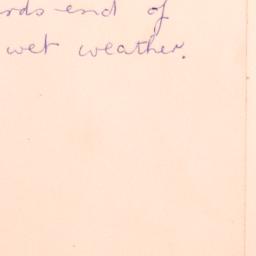 rds end of
wet weather.